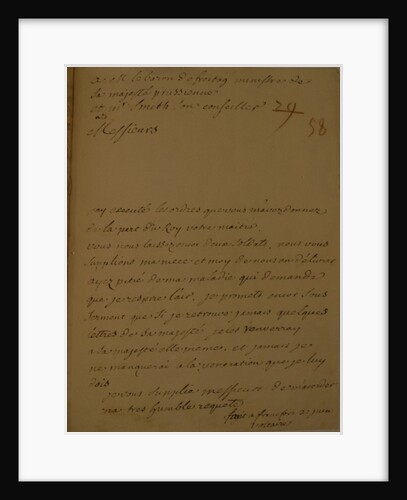 a M. le baron de freitag ministre de
sa majesté prussienne
et mr Smith son conseiller 29
58
Messieurs
jay executé les ordres que vous m'avez donnez
de la part du Roy votre maitre.
vous nous laissez encor deux soldats, nous vous
supplions ma niece et moy de nous en délivrer
ayez pitié de ma maladie qui demande
que je respire l'air, je promets encor sous
serment que si je retrouve jamais quelques
lettres de sa majesté je les renverray
a sa majesté elle meme, et jamais je
ne manquerai à la veneration que je luy
dois
je vous supplie messieurs de m'accorder
ma tres humble requete
a francfort 21 juin
voltaire